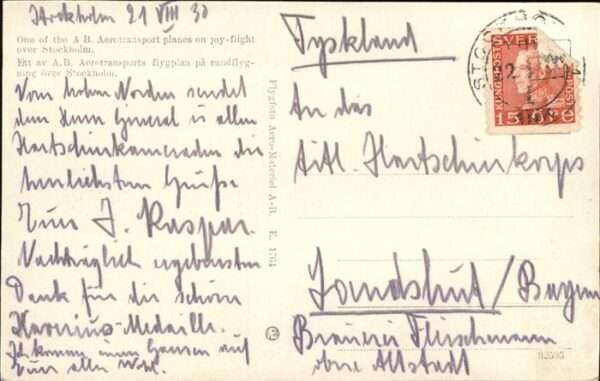 Stockholm 21 VIII 30
One of the A B. Aerotransport planes on joy-flight
over Stockholm.
Ett av A. B. Aerotransports flygplan på rundflyg-
ning över Stockholm.
Vom hohen Norden sendet
dem Herrn General u allen
Hartschierkameraden die
herzlichsten Grüße
Euer J. Kaspar.
Nachträglich ergebensten
Dank für die schöne
Medaille.
Ich komme auf
Euer aller Wohl.
Flygfoto Aero-Materiel A-B. E. 1764
Tyskland
An das
Titl. Hartschierkorps
Landshut / Bayern
Brauerei Fleischmann
obere Altstadt
STOCKHOLM
SVERIGE
15